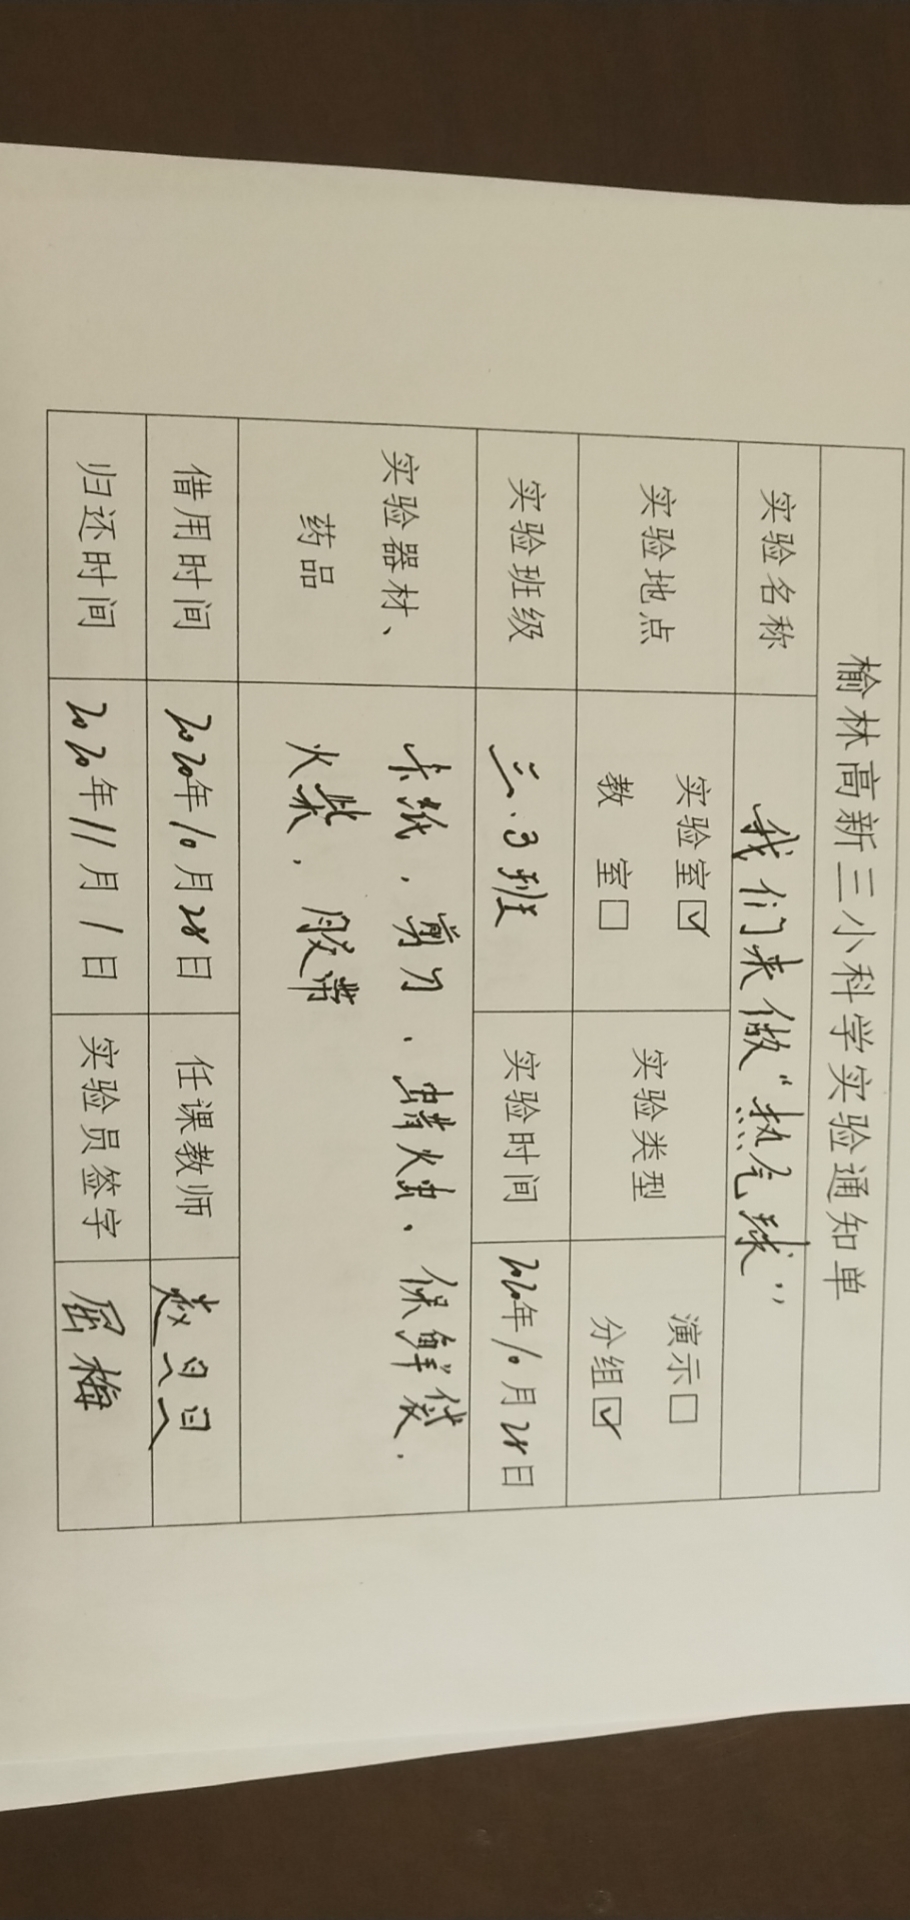 榆林高新三小科学实验通知单
实验名称 我们来做“热气球”
实验地点 实验室☑ 教 室□ 实验类型 演示□ 分组☑
实验班级 三.3班 实验时间 2020年10月28日
实验器材、药品 卡纸、剪刀、蜡烛、保鲜袋、
火柴、胶带
借用时间 2020年10月28日 任课教师 赵
归还时间 2020年11月1日 实验员签字 屈梅